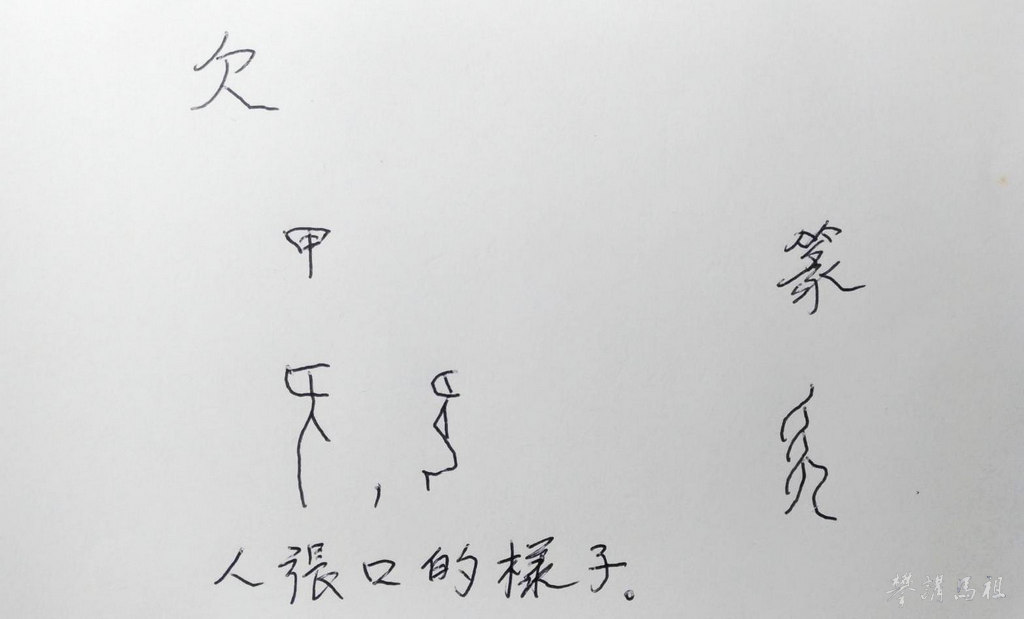 欠
甲 篆
人張口的樣子。
攀講馬祖